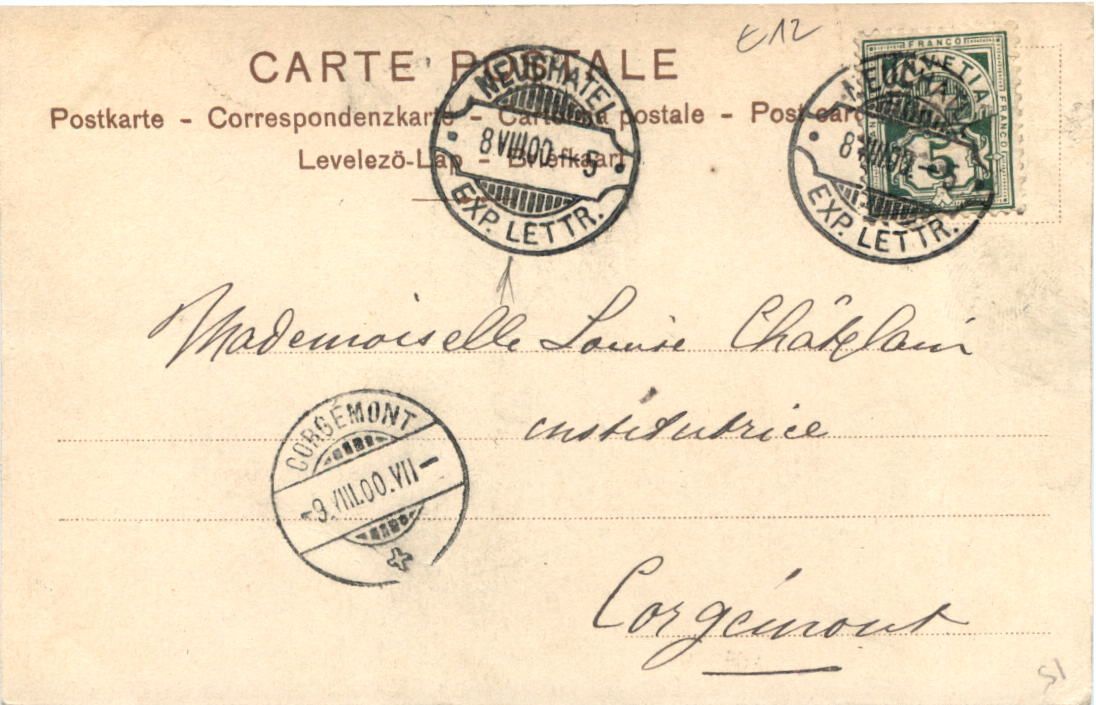 E12
CARTE POSTALE
Postkarte - Correspondenzkarte - Cartolina postale - Post-card
Levelező-Lap - Briefkaart
NEUCHATEL
8 VIII.00.-5
EXP. LETTR.
NEUCHATEL
8 VIII.00.-5
EXP. LETTR.
FRANCO
HELVETIA
FRANCO
5
Mademoiselle Louise Châtelain
institutrice
CORGÉMONT
-9.VIII.00.VII-
Corgémont